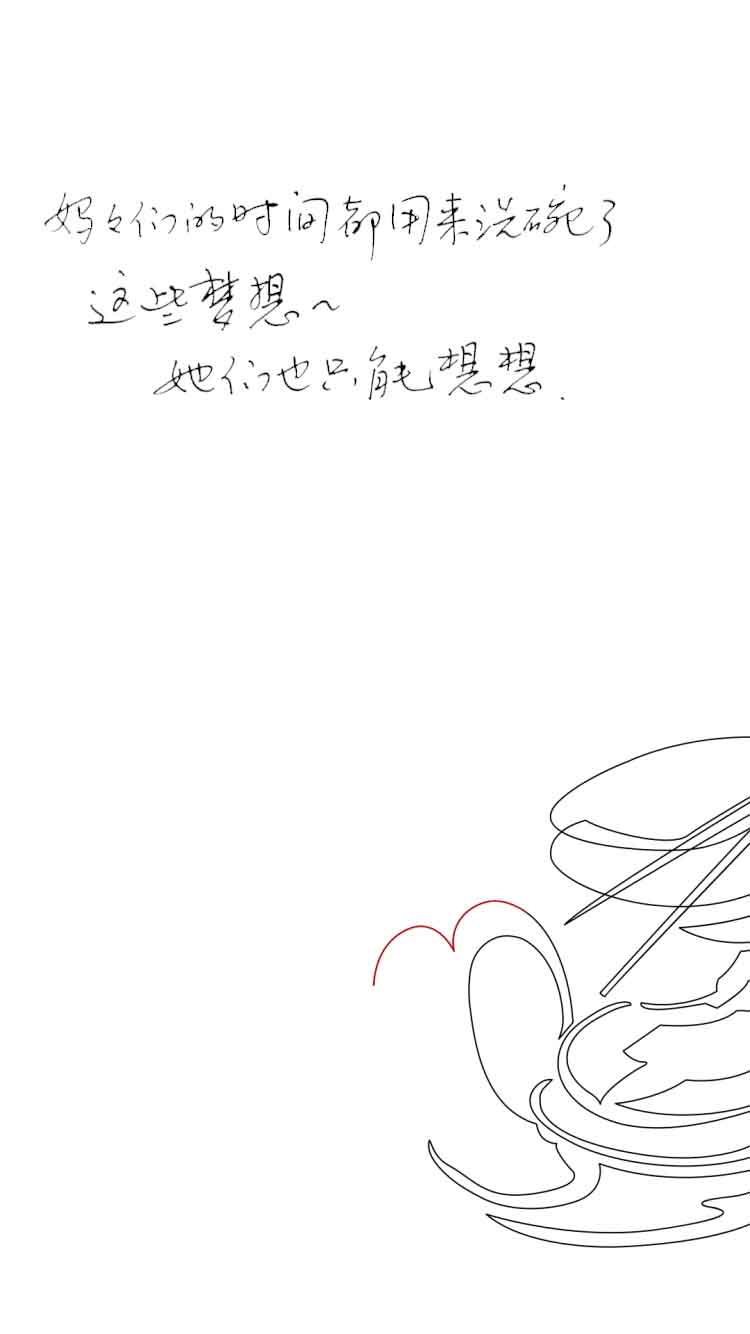 妈々们的时间都用来洗碗了
这些梦想～
她们也只能想想.